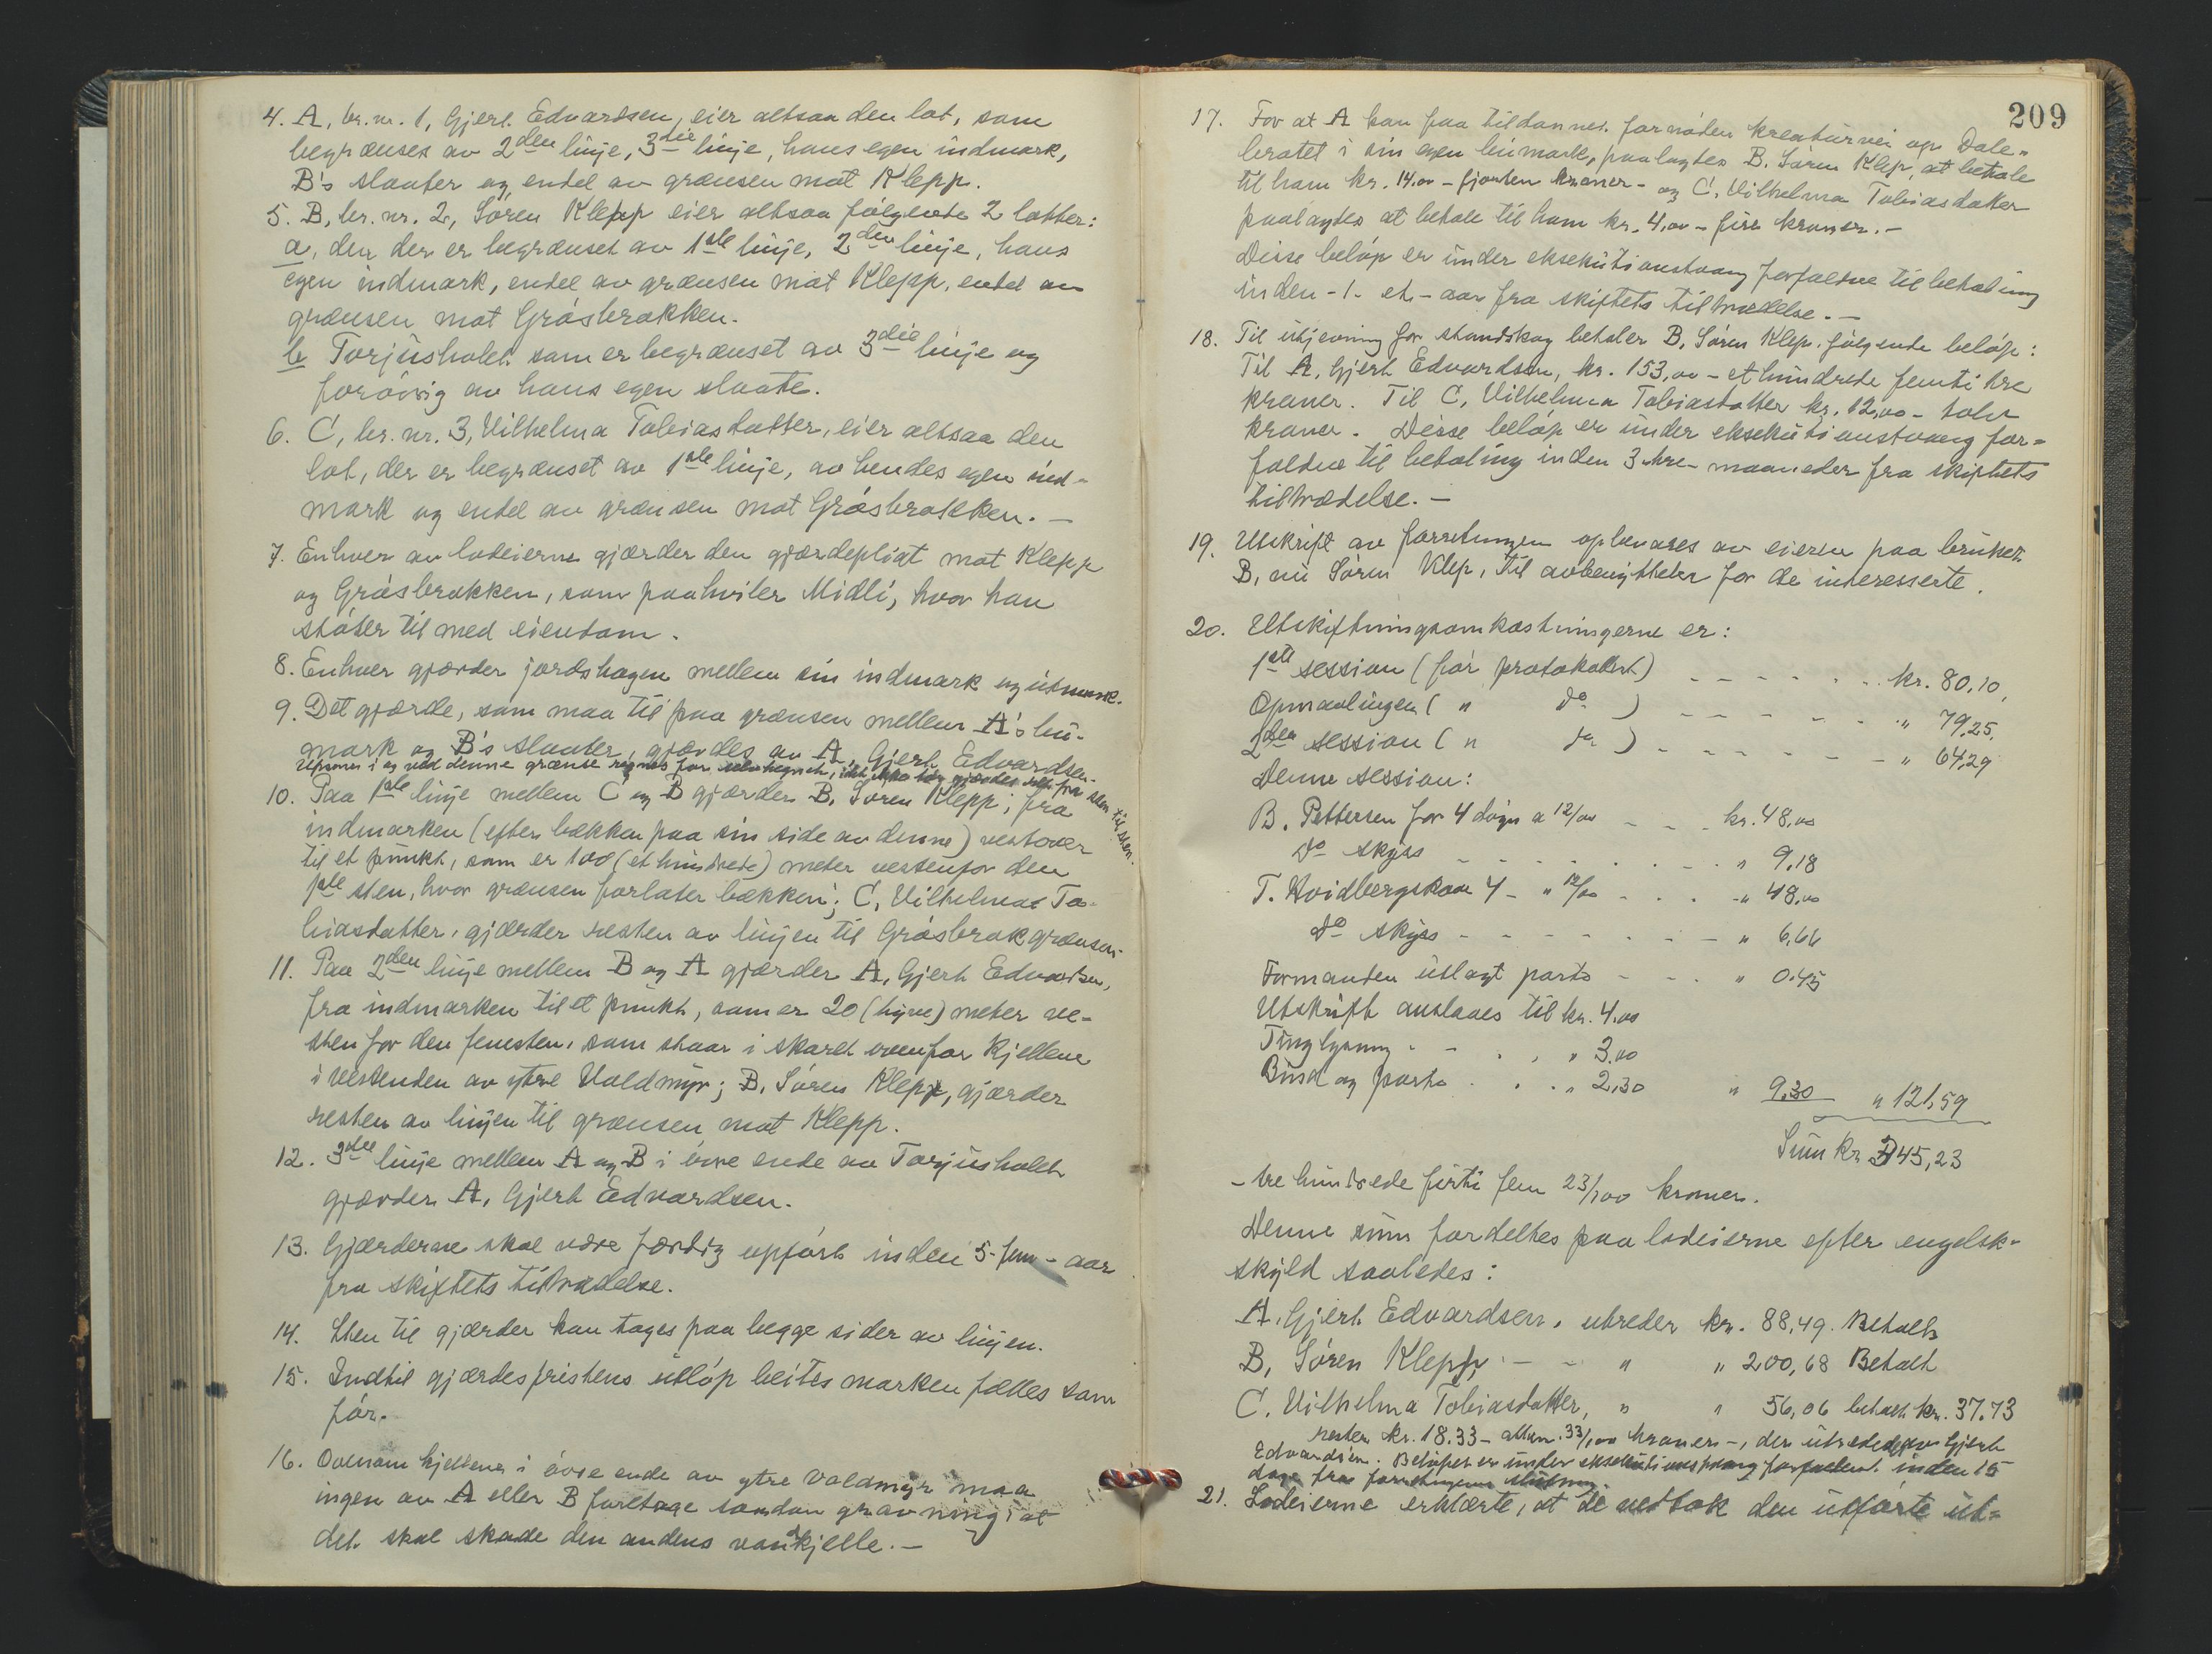 4. A, br. nr. 1, Gjert Edvardsen, eier altsaa den lot, som
begrænses av 2den linje, 3die linje, hans egen indmark,
B's slaater og endel av grænsen mot Klepp.
5. B, br. nr. 2, Sören Klepp eier altsaa følgende 2 lotter:
a, den der er begrænset av 1ste linje, 2den linje, hans
egen indmark, endel av grænsen mot Klepp, endel av
grænsen mot Gråsbrækken.
b Torjusholet som er begrænset av 3die linje og
forövrig av hans egen slaate.
6. C, br. nr. 3, Vilhelma Tobiasdatter, eier altsaa den
lot, der er begrænset av 1ste linje, av hendes egen ind-
mark og endel av grænsen mot Gråsbrækken. —
7. Enhver av lodeierne gjærder den gjærdepligt mot Klepp
og Gråsbrækken, som paahviler Midli, hvor han
støter til med eiendom.
8. Enhver gjærder jordshagen mellem sin indmark og utmark.
9. Det gjærde, som maa til paa grænsen mellem A's hei-
mark og B's slaater, gjærdes av A, Gjert Edvardsen.
i og ved denne grænse regnes for fra sten til sten.
10. Paa 1ste linje mellem C og B gjærder B, Sören Klepp; fra
indmarken (efter bækken paa sin side av denne) vestover
til et punkt, som er 100 (et hundrede) meter vestenfor den
1ste sten, hvor grænsen forlater bækken; C, Vilhelma To-
biasdatter, gjærder resten av linjen til Gråsbrækgrænsen.
11. Paa 2den linje mellem B og A gjærder A, Gjert Edvardsen,
fra indmarken til et punkt, som er 20 (tyve) meter ve-
sten for den femsten, som staar i skaret ovenfor kjellene
i vestenden av ytre Valdmyr; B, Sören Klepp, gjærder
resten av linjen til grænsen mot Klepp.
12. 3die linje mellem A og B i övre ende av Torjusholet
gjærder A, Gjert Edvardsen.
13. Gjærderne skal være færdig opført inden 5-fem-aar
fra skiftets tiltrædelse.
14. Sten til gjærder kan tages paa begge sider av linjen.
15. Indtil gjærdesfristens utlöp beites marken fælles som
för.
16. Ovenom kjellene i övre ende av ytre Valdmyr maa
ingen av A eller B foretage saadan gravning at
det skal skade den andens vandkjelle. —
209
17. For at A kan faa tildannet fornöden kreaturvei op Dale-
bratet i sin egen heimark, paalagdes B. Sören Klep, at betale
til ham kr. 14.00 - fjorten kroner - og C, Vilhelma Tobiasdatter
paalagdes at betale til ham kr. 4,00 - fire kroner. —
Disse belöp er under eksekutionstvang forfaldne til betaling
inden -1- et - aar fra skiftets tiltrædelse. —
18. Til utjevning for standskog betaler B, Sören Klep, følgende belöp:
Til A, Gjert Edvardsen, kr. 153,00 - et hundrede femti tre
kroner. Til C, Vilhelma Tobiasdatter kr. 12,00 - tolv
kroner. Disse belöp er under eksekutionstvang for-
faldne til betaling inden 3-tre-maaneder fra skiftets
tiltrædelse. —
19. Utskrift av forretningen opbevares av eieren paa bruket
B, nu Sören Klep, til avbenyttelse for de interesserte.
20. Utskiftningsomkostningerne er:
1ste session (för protokollert) kr. 80,10,
Opmaalingen ( " do ) " 79,25.
2den session ( " do ) " 64,29
Denne session:
B. Pettersen for 4 dögn a 12/00 kr. 48,00
do skyss " 9,18
T. Hvidbergskaar 4 - " 12/00 " 48,00
do skyss " 6,66
Formanden utlagt porto " 0.45
Utskrift anslaaes til kr. 4.00
Tinglysning " 3.00
Bud og porto " 2,30 " 9,30 " 121,59
Sum kr 345,23
- tre hundrede førti fem 23/100 kroner.
Denne sum fordeltes paa lodeierne efter engelsk-
skyld saaledes:
A, Gjert Edvardsen, utreder kr. 88,49. Betalt
B, Sören Klepp, " " 200,68 Betalt
C. Vilhelma Tobiasdatter, " " 56,06 betalt kr. 37.73
resten kr. 18.33 - atten 33/100 kroner -, der utredes av Gjert
Edvardsen. Beløpet er under eksekutionstvang forfaldent inden 15
dage fra forretningens slutning.
21. Lodeierne erklærte, at de vedtok den utførte ut-